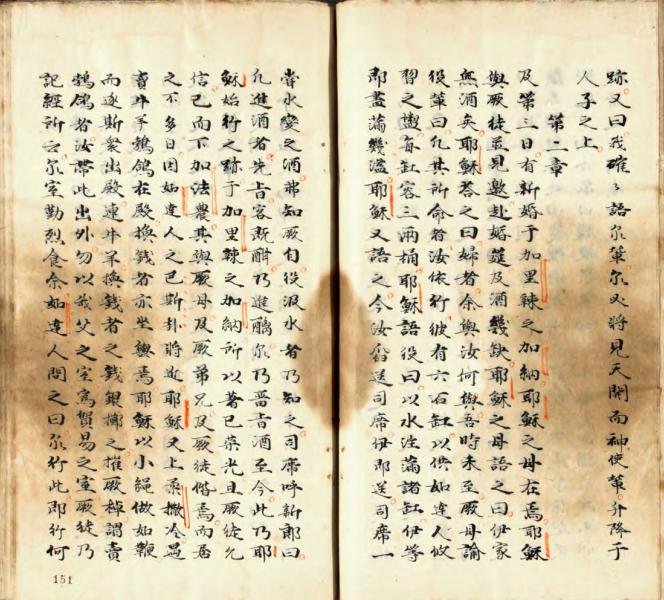 跡又曰我確〻語尔輩尔又將見天開而神使輩升降于
人子之上
第二章
及第三日有新婚于加里辣之加納耶穌之母在焉耶穌
與厥徒並見邀赴婚筵及酒幾缺耶穌之母語之曰伊家
無酒矣耶穌答之曰婦者余與汝何與吾時未至厥母諭
役輩曰凡其所命者汝依行彼有六石缸以供如達人攸
習之盥每缸容三兩桶耶穌語役曰以水注滿諸缸伊等
即盡滿幾溢耶穌又語之今汝酌送司席伊即送司席一
嘗水變之酒弗知厥自役汲水者乃知之司席呼新郎曰
凡進酒者先旨客既酣乃進醨尔乃晋旨酒至今此乃耶
穌始行之跡于加里辣之加納所以著已榮光且厥徒允
信已而下加法農其與厥母及厥弟兄及厥徒偕焉而居
之不多日因如達人之巴斯卦將逝耶穌又上柔撒冷遇
賣牛羊鵓鴿在殿換錢者亦坐與焉耶穌以小繩做如鞭
而逐斯衆出殿連牛羊換錢者之錢銀擲之摧厥棹謂賣
鵓鴿者汝帶此出外勿以我父之室為貿易之室厥徒乃
記經所云尔室勤烈食余如達人問之曰尔行此即行何
151